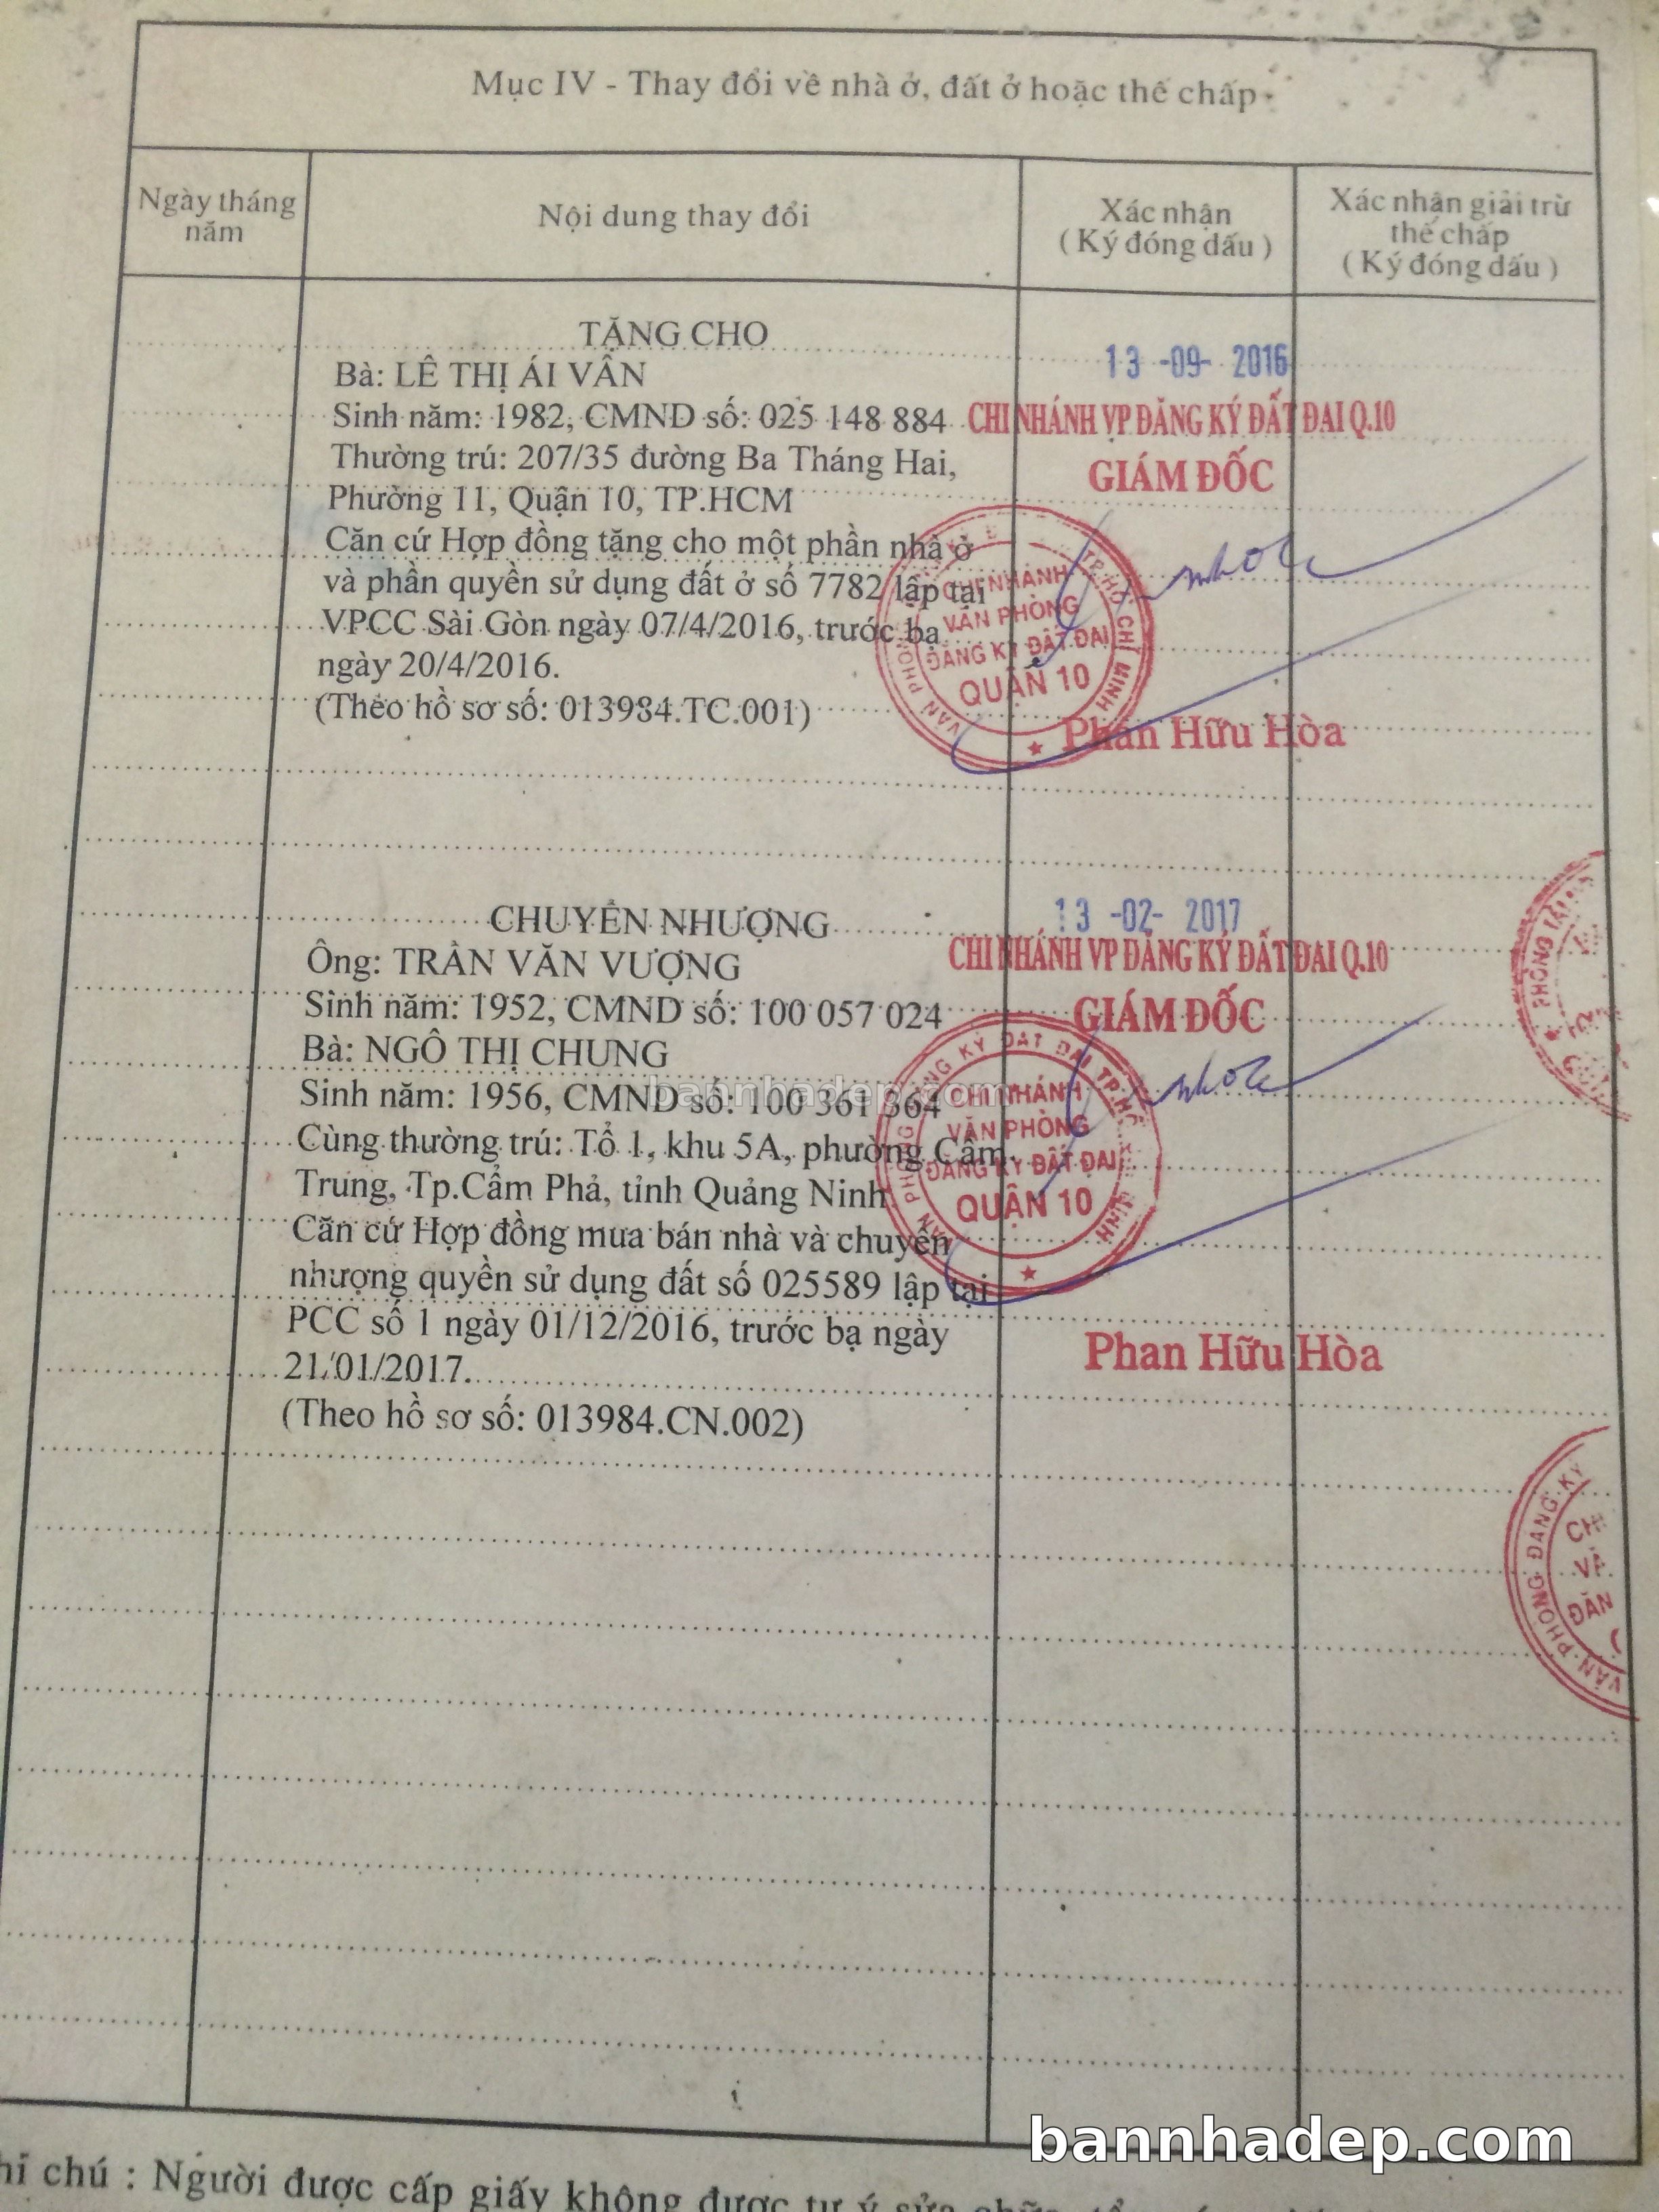 Mục IV - Thay đổi về nhà ở, đất ở hoặc thế chấp
Ngày tháng năm
Nội dung thay đổi
Xác nhận
( Ký đóng dấu )
Xác nhận giải trừ
thế chấp
( Ký đóng dấu )
TẶNG CHO
Bà: LÊ THỊ ÁI VÂN
Sinh năm: 1982, CMND số: 025 148 884
Thường trú: 207/35 đường Ba Tháng Hai,
Phường 11, Quận 10, TP.HCM
Căn cứ Hợp đồng tặng cho một phần nhà ở
và phần quyền sử dụng đất ở số 7782 lập tại
VPCC Sài Gòn ngày 07/4/2016, trước bạ
ngày 20/4/2016.
(Theo hồ sơ số: 013984.TC.001)
13 -09- 2016
CHI NHÁNH VP ĐĂNG KÝ ĐẤT ĐAI Q.10
GIÁM ĐỐC
CHI NHÁNH
VĂN PHÒNG
ĐĂNG KÝ ĐẤT ĐAI
QUẬN 10
TP.HỒ CHÍ MINH
Phan Hữu Hòa
CHUYỂN NHƯỢNG
Ông: TRẦN VĂN VƯỢNG
Sinh năm: 1952, CMND số: 100 057 024
Bà: NGÔ THỊ CHUNG
Sinh năm: 1956, CMND số: 100 361 364
Cùng thường trú: Tổ 1, khu 5A, phường Cẩm
Trung, Tp.Cẩm Phả, tỉnh Quảng Ninh
Căn cứ Hợp đồng mua bán nhà và chuyển
nhượng quyền sử dụng đất số 025589 lập tại
PCC số 1 ngày 01/12/2016, trước bạ ngày
21/01/2017.
(Theo hồ sơ số: 013984.CN.002)
13 -02- 2017
CHI NHÁNH VP ĐĂNG KÝ ĐẤT ĐAI Q.10
GIÁM ĐỐC
VĂN PHÒNG ĐĂNG KÝ ĐẤT ĐAI TP.HỒ
CHI NHÁNH
VĂN PHÒNG
ĐĂNG KÝ ĐẤT ĐAI
QUẬN 10
Phan Hữu Hòa
bannhadep.com
VĂN PHÒNG ĐĂNG KÝ
bannhadep.com
hi chú : Người được cấp giấy không được tự ý sửa